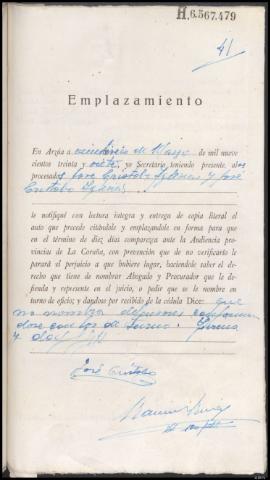 H.6.567.479
41
Emplazamiento
En Arzúa a veintiseis de Mayo de mil nueve
cientos treinta y siete, yo Secretario teniendo presente, al os
procesados José Cristobo Iglesias y José
Cristobo Iglesias
le notifiqué con lectura integra y entrega de copia literal el
auto que precede citándole y emplazandole en forma para que
en el término de diez dias comparezca ante la Audiencia pro-
vincias de La Coruña, con prevención que de no verificarlo le
parará el perjuicio a que hubiere lugar, haciendole saber el de-
recho que tiene de nombrar Abogado y Procurador que le de-
fienda y represente en el juicio, o pedir que se le nombren en
turno de oficio; y dandose por recibido de la cédula Dice: que
no nombra defensores conforman
dose con los de turno. Firma
y doy fé
José Cristobo